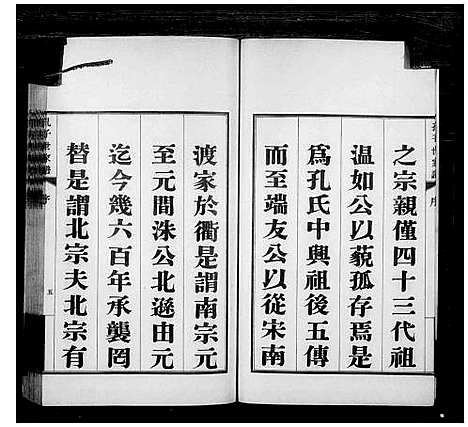 之宗親僅四十三代祖
温如公以藐孤存焉是
爲孔氏中興祖後五傳
而至端友公以從宋南
渡家於衢是謂南宗元
至元間洙公北遜由元
迄今幾六百年承襲罔
替是謂北宗夫北宗有
孔子世家譜
序
五